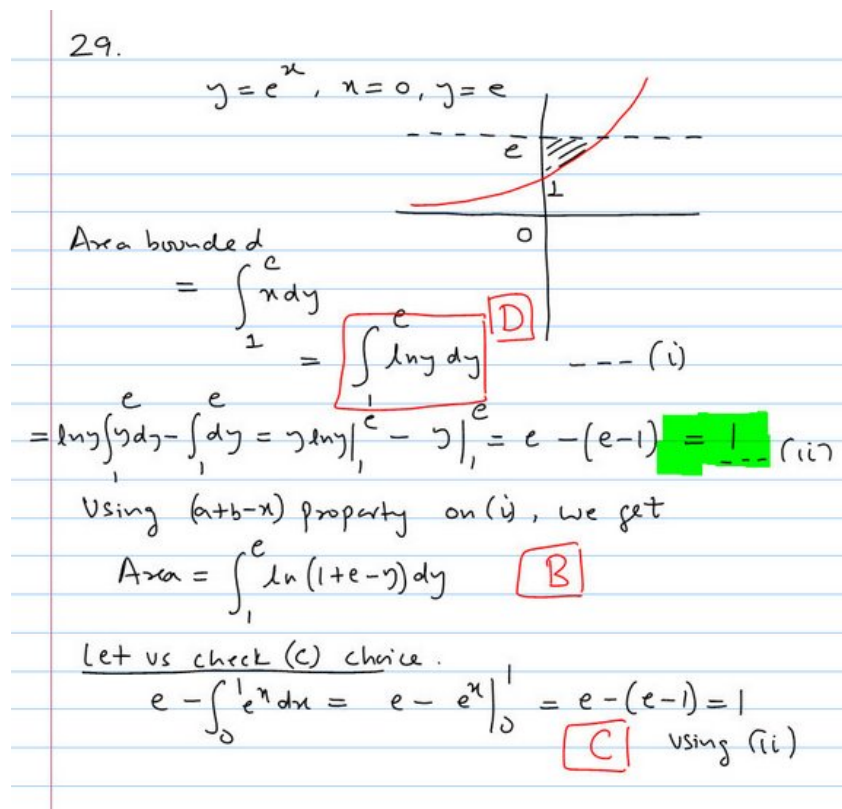 29.
y = e^x, x = 0, y = e
e
1
0
Area bounded
= ∫_1^e x dy
= ∫_1^e ln y dy D --- (i)
= ln y ∫_1^e y dy - ∫_1^e dy = y ln y |_1^e - y |_1^e = e - (e-1) = 1 --- (ii)
Using (a+b-x) property on (i), we get
Area = ∫_1^e ln (1+e-y) dy B
Let us check (C) choice.
e - ∫_0^1 e^x dx = e - e^x |_0^1 = e - (e-1) = 1
C using (ii)